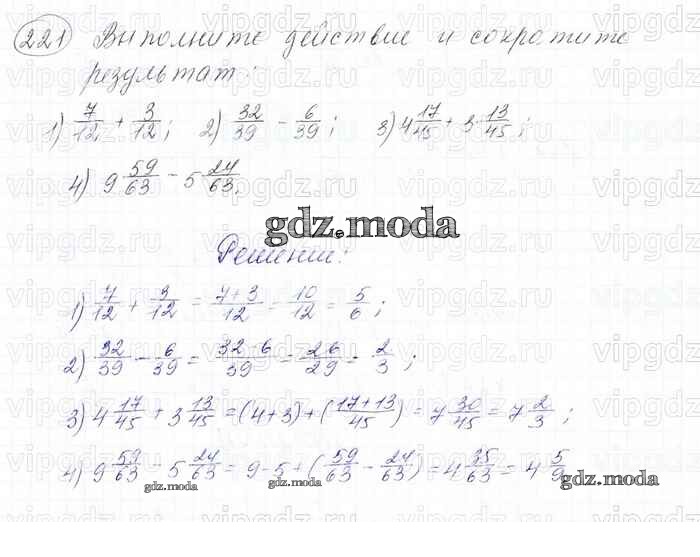 221 Выполните действие и сократите
результат:
1) 7/12 + 3/12; 2) 32/39 - 6/39; 3) 4 17/45 + 3 13/45;
4) 9 59/63 - 5 24/63.
gdz.moda
Решение:
1) 7/12 + 3/12 = 7+3/12 = 10/12 = 5/6;
2) 32/39 - 6/39 = 32-6/39 = 26/29 = 2/3;
3) 4 17/45 + 3 13/45 = (4+3)+(17+13/45) = 7 30/45 = 7 2/3;
4) 9 59/63 - 5 24/63 = 9-5+(59/63 - 24/63) = 4 35/63 = 4 5/9
gdz.moda gdz.moda gdz.moda